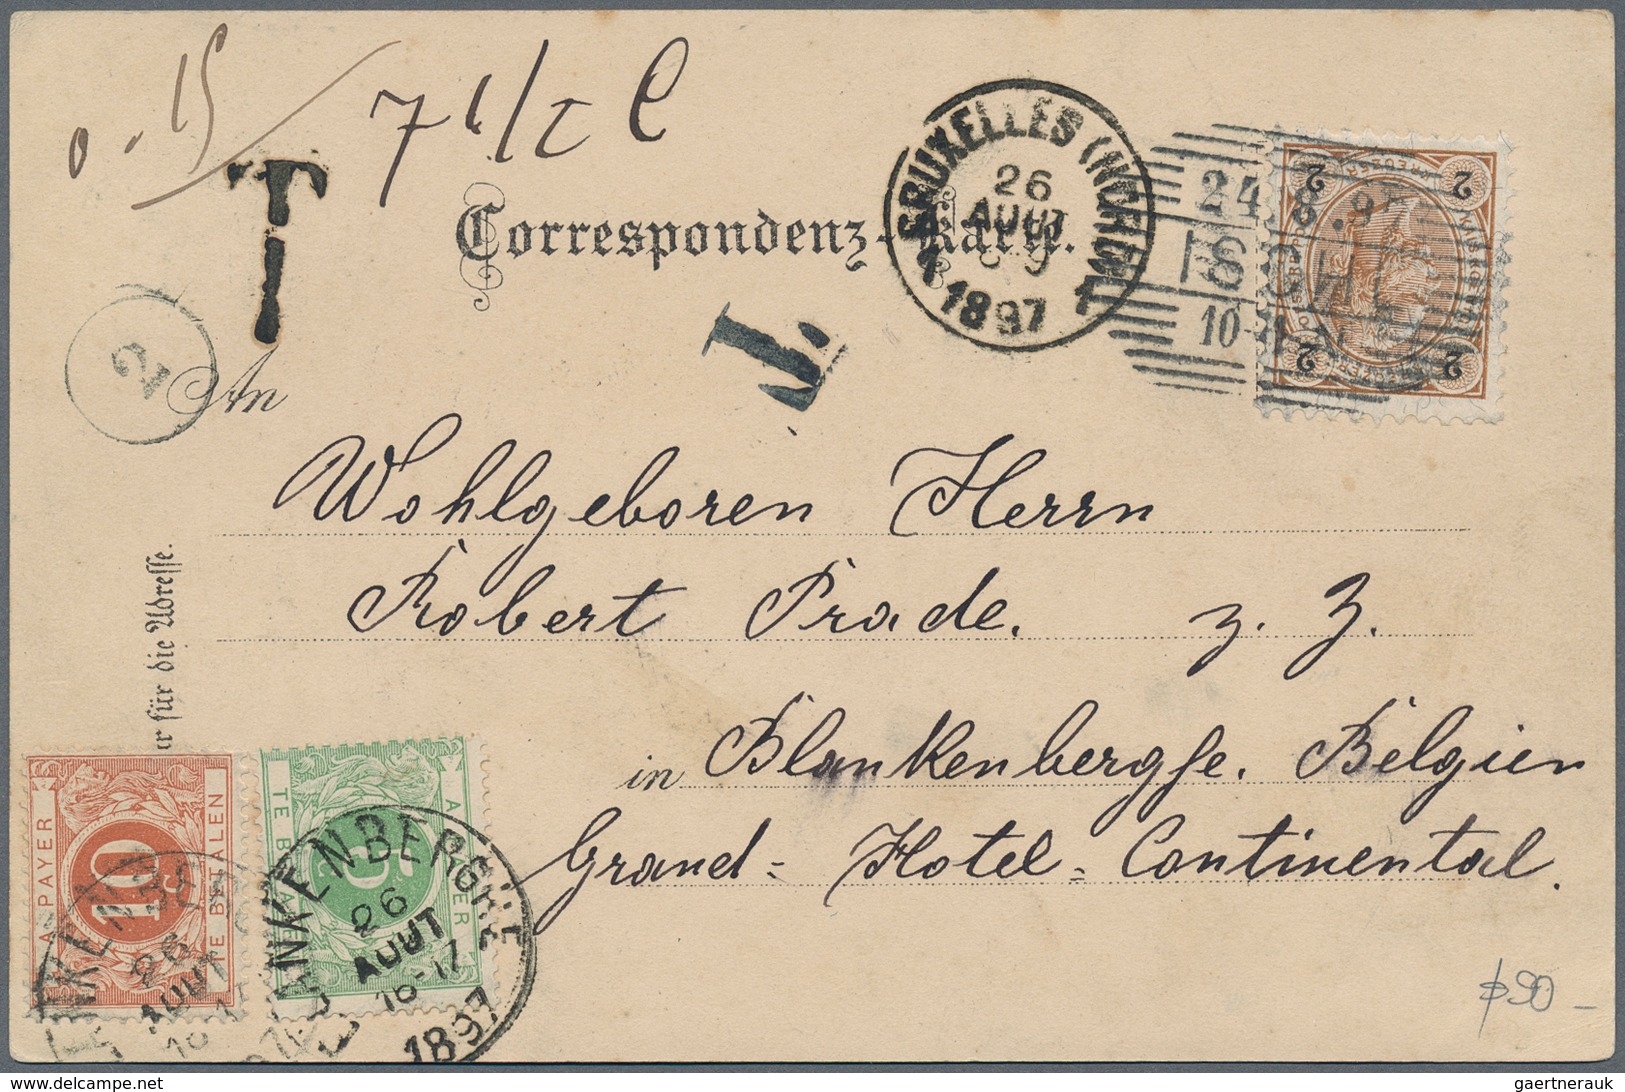 0.15 / 7 1/2 C
T
Correspondenz-Karte.
BRUXELLES (NORD)
26
AOUT
1897
1
24.8.97
10-
2 2 2 2
T.
2
An
Wohlgeboren Herrn
Robert Prade. z. Z.
in Blankenberghe. Belgien
Grand-Hotel-Continental.
ur für die Adresse.
A PAYER
10
TE BETALEN
A PAYER
5
TE BETALEN
BLANKENBERGHE
26
AOUT
1897
BLANKENBERGHE
26
AOUT
16-17
1897
90-
gaertnerauk